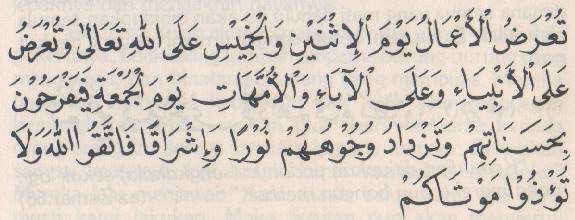 تُعْرَضُ الْأَعْمَالُ يَوْمَ الْاِثْنَيْنِ وَالْخَمِيْسِ عَلَى اللهِ تَعَالَى وَتُعْرَضُ
عَلَى الْأَنْبِيَاءِ وَعَلَى الْآبَاءِ وَالْأُمَّهَاتِ يَوْمَ الْجُمْعَةِ فَيَفْرَحُوْنَ
بِحَسَنَاتِهِمْ وَتَزْدَادُ وُجُوْهُهُمْ نُوْرًا وَإِشْرَاقًا فَاتَّقُوا اللهَ وَلَا
تُؤْذُوْا مَوْتَاكُمْ